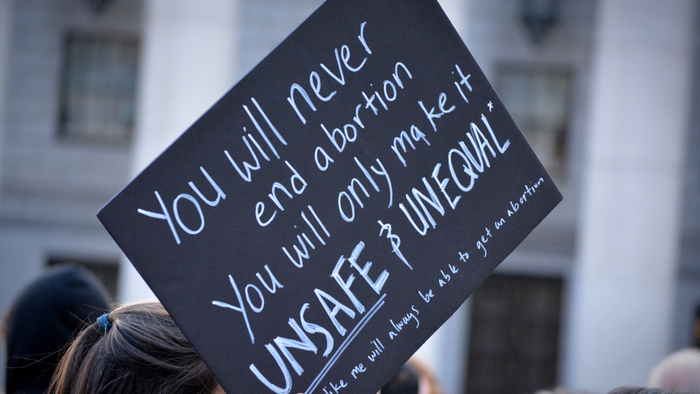 You will never
end abortion
You will only make it
UNSAFE & UNEQUAL*
like me will always be able to get an abortion